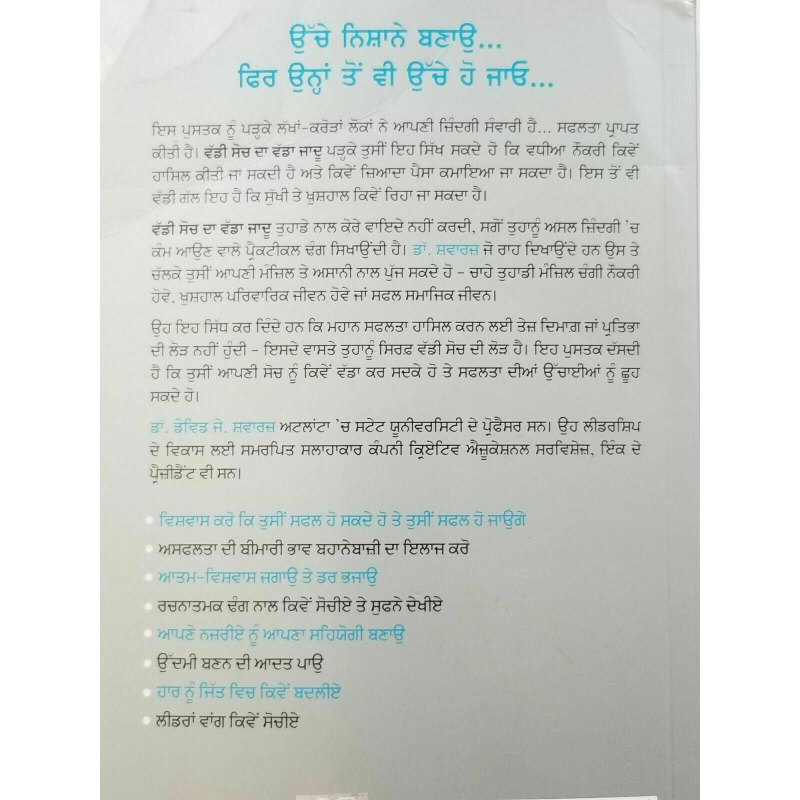 ਉੱਚੇ ਨਿਸ਼ਾਨੇ ਬਣਾਉ...
ਫਿਰ ਉਨ੍ਹਾਂ ਤੋਂ ਵੀ ਉੱਚੇ ਹੋ ਜਾਓ...
ਇਸ ਪੁਸਤਕ ਨੂੰ ਪੜ੍ਹਕੇ ਲੱਖਾਂ-ਕਰੋੜਾਂ ਲੋਕਾਂ ਨੇ ਆਪਣੀ ਜ਼ਿੰਦਗੀ ਸੰਵਾਰੀ ਹੈ... ਸਫਲਤਾ ਪ੍ਰਾਪਤ
ਕੀਤੀ ਹੈ। ਵੱਡੀ ਸੋਚ ਦਾ ਵੱਡਾ ਜਾਦੂ ਪੜ੍ਹਕੇ ਤੁਸੀਂ ਇਹ ਸਿੱਖ ਸਕਦੇ ਹੋ ਕਿ ਵਧੀਆ ਨੌਕਰੀ ਕਿਵੇਂ
ਹਾਸਿਲ ਕੀਤੀ ਜਾ ਸਕਦੀ ਹੈ ਅਤੇ ਕਿਵੇਂ ਜ਼ਿਆਦਾ ਪੈਸਾ ਕਮਾਇਆ ਜਾ ਸਕਦਾ ਹੈ। ਇਸ ਤੋਂ ਵੀ
ਵੱਡੀ ਗੱਲ ਇਹ ਹੈ ਕਿ ਸੁੱਖੀ ਤੇ ਖ਼ੁਸ਼ਹਾਲ ਕਿਵੇਂ ਰਿਹਾ ਜਾ ਸਕਦਾ ਹੈ।
ਵੱਡੀ ਸੋਚ ਦਾ ਵੱਡਾ ਜਾਦੂ ਤੁਹਾਡੇ ਨਾਲ ਕੋਰੇ ਵਾਇਦੇ ਨਹੀਂ ਕਰਦੀ, ਸਗੋਂ ਤੁਹਾਨੂੰ ਅਸਲ ਜ਼ਿੰਦਗੀ `ਚ
ਕੰਮ ਆਉਣ ਵਾਲੇ ਪ੍ਰੈਕਟੀਕਲ ਢੰਗ ਸਿਖਾਉਂਦੀ ਹੈ। ਡਾੱ. ਸ਼ਵਾਰਜ਼ ਜੋ ਰਾਹ ਦਿਖਾਉਂਦੇ ਹਨ ਉਸ ਤੇ
ਚੱਲਕੇ ਤੁਸੀਂ ਆਪਣੀ ਮੰਜ਼ਿਲ ਤੇ ਅਸਾਨੀ ਨਾਲ ਪੁੱਜ ਸਕਦੇ ਹੋ - ਚਾਹੇ ਤੁਹਾਡੀ ਮੰਜ਼ਿਲ ਚੰਗੀ ਨੌਕਰੀ
ਹੋਵੇ, ਖ਼ੁਸ਼ਹਾਲ ਪਰਿਵਾਰਿਕ ਜੀਵਨ ਹੋਵੇ ਜਾਂ ਸਫਲ ਸਮਾਜਿਕ ਜੀਵਨ।
ਉਹ ਇਹ ਸਿੱਧ ਕਰ ਦਿੰਦੇ ਹਨ ਕਿ ਮਹਾਨ ਸਫਲਤਾ ਹਾਸਿਲ ਕਰਨ ਲਈ ਤੇਜ਼ ਦਿਮਾਗ਼ ਜਾਂ ਪ੍ਰਤਿਭਾ
ਦੀ ਲੋੜ ਨਹੀਂ ਹੁੰਦੀ - ਇਸਦੇ ਵਾਸਤੇ ਤੁਹਾਨੂੰ ਸਿਰਫ਼ ਵੱਡੀ ਸੋਚ ਦੀ ਲੋੜ ਹੈ। ਇਹ ਪੁਸਤਕ ਦੱਸਦੀ
ਹੈ ਕਿ ਤੁਸੀਂ ਆਪਣੀ ਸੋਚ ਨੂੰ ਕਿਵੇਂ ਵੱਡਾ ਕਰ ਸਦਕੇ ਹੋ ਤੇ ਸਫਲਤਾ ਦੀਆਂ ਉੱਚਾਈਆਂ ਨੂੰ ਛੂਹ
ਸਕਦੇ ਹੋ।
ਡਾੱ. ਡੇਵਿਡ ਜੇ. ਸ਼ਵਾਰਜ਼ ਅਟਲਾਂਟਾ `ਚ ਸਟੇਟ ਯੂਨੀਵਰਸਿਟੀ ਦੇ ਪ੍ਰੋਫੈਸਰ ਸਨ। ਉਹ ਲੀਡਰਸ਼ਿਪ
ਦੇ ਵਿਕਾਸ ਲਈ ਸਮਰਪਿਤ ਸਲਾਹਾਕਾਰ ਕੰਪਨੀ ਕ੍ਰਿਏਟਿਵ ਐਜੂਕੇਸ਼ਨਲ ਸਰਵਿਸ਼ੇਜ਼, ਇੰਕ ਦੇ
ਪ੍ਰੈਜ਼ੀਡੈਂਟ ਵੀ ਸਨ।
• ਵਿਸ਼ਵਾਸ ਕਰੋ ਕਿ ਤੁਸੀਂ ਸਫਲ ਹੋ ਸਕਦੇ ਹੋ ਤੇ ਤੁਸੀਂ ਸਫਲ ਹੋ ਜਾਉਗੇ
• ਅਸਫਲਤਾ ਦੀ ਬੀਮਾਰੀ ਭਾਵ ਬਹਾਨੇਬਾਜ਼ੀ ਦਾ ਇਲਾਜ ਕਰੋ
• ਆਤਮ-ਵਿਸ਼ਵਾਸ ਜਗਾਉ ਤੇ ਡਰ ਭਜਾਉ
• ਰਚਨਾਤਮਕ ਢੰਗ ਨਾਲ ਕਿਵੇਂ ਸੋਚੀਏ ਤੇ ਸੁਫਨੇ ਦੇਖੀਏ
• ਆਪਣੇ ਨਜ਼ਰੀਏ ਨੂੰ ਆਪਣਾ ਸਹਿਯੋਗੀ ਬਣਾਉ
• ਉੱਦਮੀ ਬਣਨ ਦੀ ਆਦਤ ਪਾਉ
• ਹਾਰ ਨੂੰ ਜਿੱਤ ਵਿਚ ਕਿਵੇਂ ਬਦਲੀਏ
• ਲੀਡਰਾਂ ਵਾਂਗ ਕਿਵੇਂ ਸੋਚੀਏ